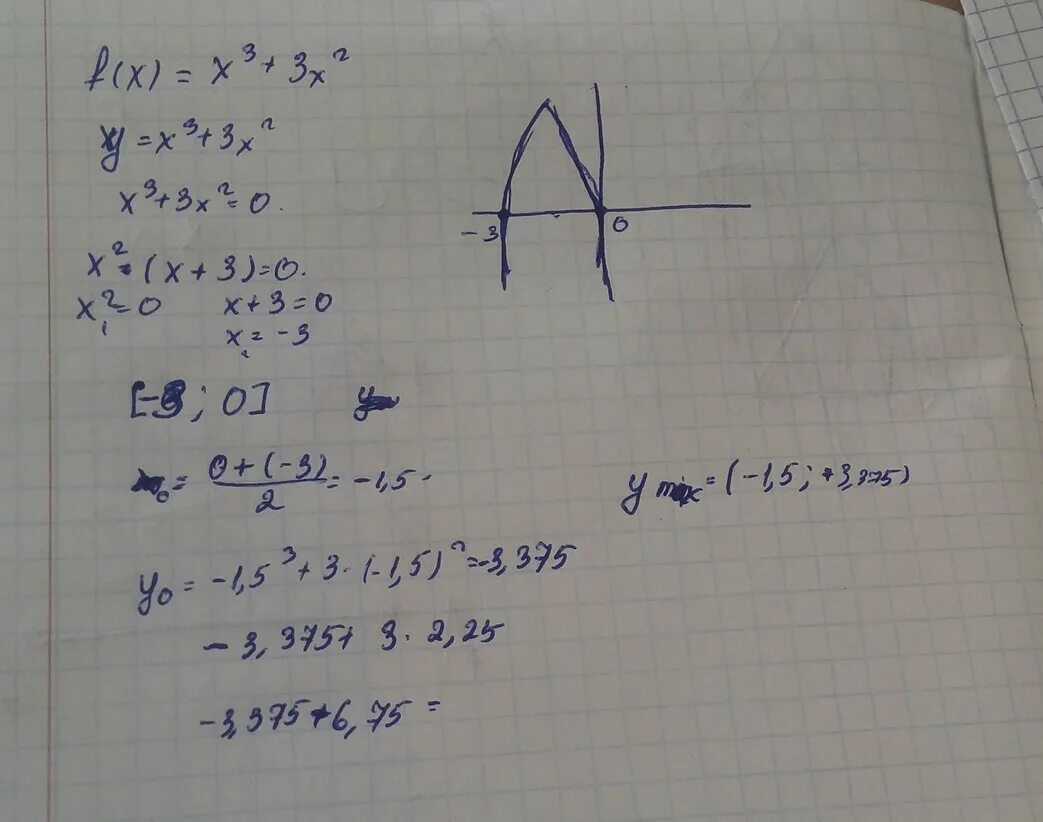 f(x) = x³ + 3x²
y = x³ + 3x²
x³ + 3x² = 0.
x² · (x + 3) = 0.
x₁² = 0 x + 3 = 0
x₂ = -3
-3 0
[-3 ; 0]
₀ = (0 + (-3))/2 = -1,5
y max = (-1,5 ; +3,375)
y₀ = -1,5³ + 3 · (-1,5)² = -3,375
-3,375 + 3 · 2,25
-3,375 + 6,75 =